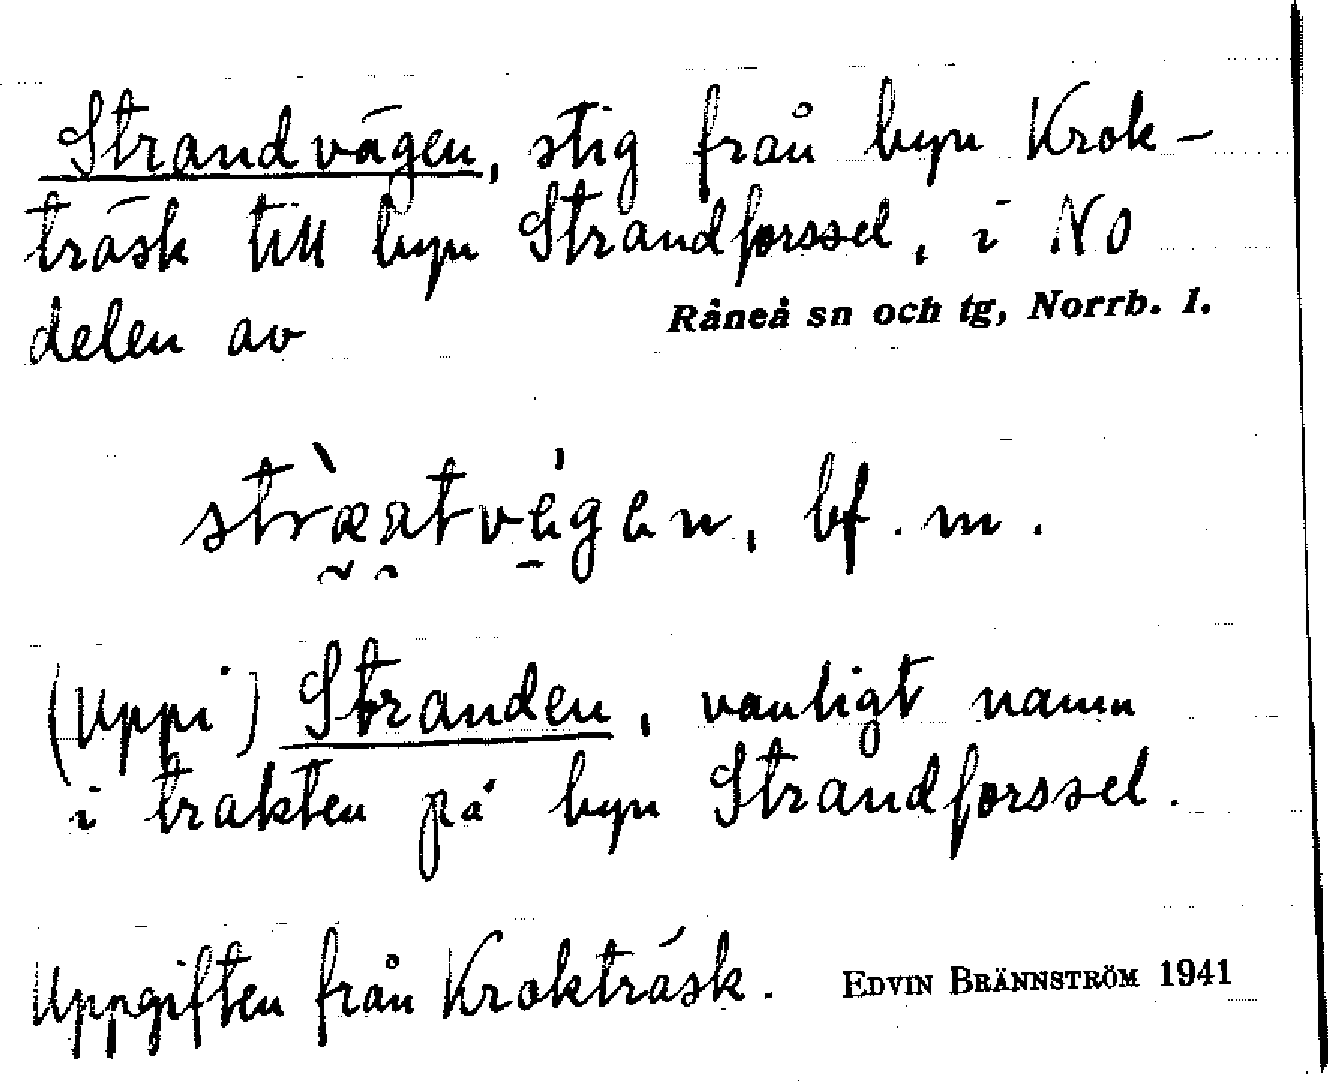 Strandvägen, stig från byn Krok-
träsk till byn Strandforssel, i NO
delen av Råneå sn och tg, Norrb. l.
bf. m.
(Uppi) Stranden, vanligt namn
i trakten på byn Strandforssel.
Uppgiften från Krokträsk. EDVIN BRÄNNSTRÖM 1941